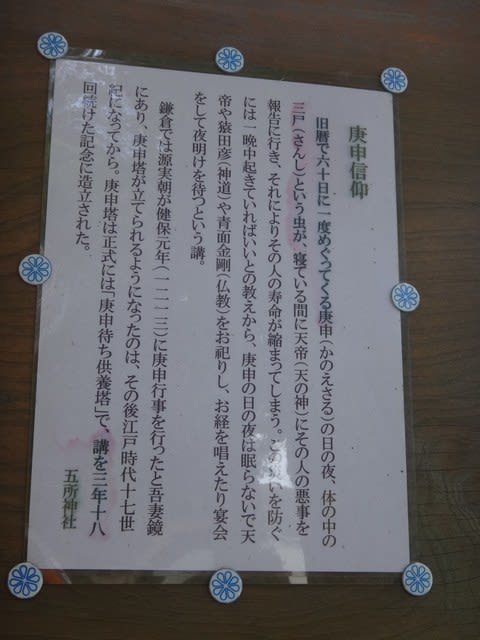 庚申信仰
旧暦で六十日に一度めぐってくる庚申(かのえさる)の日の夜、体の中の
三尸(さんし)という虫が、寝ている間に天帝(天の神)にその人の悪事を
報告に行き、それによりその人の寿命が縮まってしまう。この災いを防ぐ
には一晩中起きていればいいとの教えから、庚申の日の夜は眠らないで天
帝や猿田彦(神道)や青面金剛(仏教)をお祀りし、お経を唱えたり宴会
をして夜明けを待つという講。
鎌倉では源実朝が健保元年(一二一三)に庚申行事を行ったと吾妻鏡
にあり、庚申塔が立てられるようになったのは、その後江戸時代十七世
紀になってから。庚申塔は正式には「庚申待ち供養塔」で、講を三年十八
回続けた記念に造立された。
五所神社